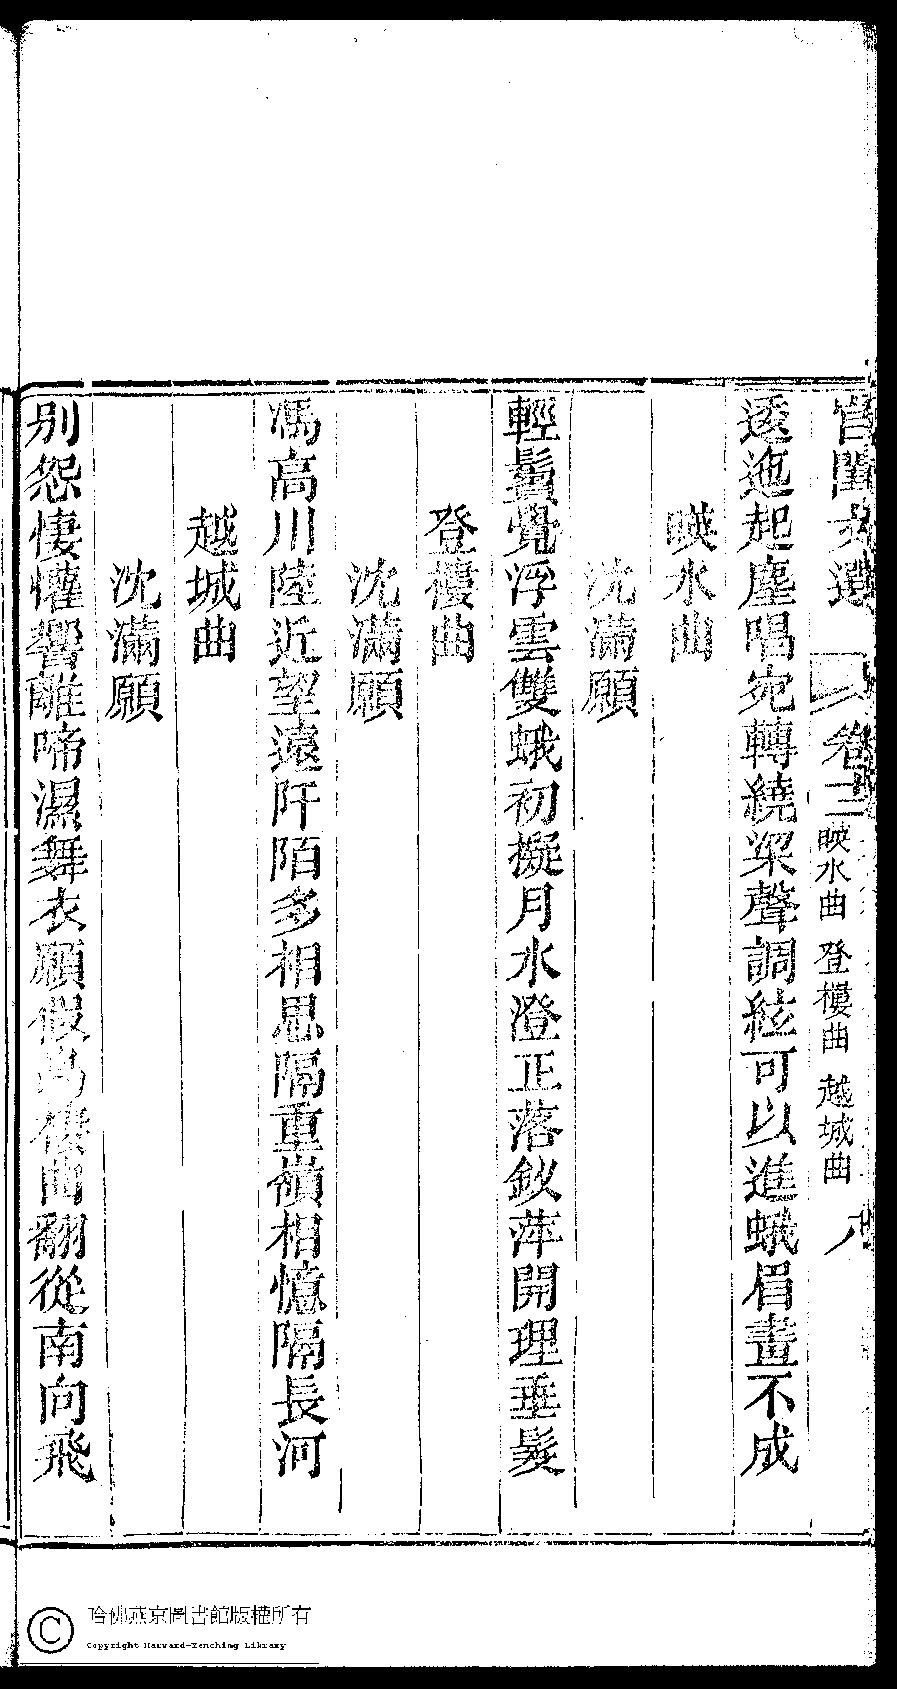 宮閨文選 卷二 映水曲 登樓曲 越城曲 八
逶迤起塵唱宛轉繞梁聲調絃可以進蛾眉畫不成
映水曲
沈滿願
輕鬢覺浮雲雙蛾初擬月水澄正落釵萍開理垂髮
登樓曲
沈滿願
馮高川陸近望遠阡陌多相思隔重嶺相憶隔長河
越城曲
沈滿願
別怨悽懽響離啼濕舞衣願假烏棲曲翻從南向飛
哈佛燕京圖書館版權所有
Copyright Harvard-Yenching Library